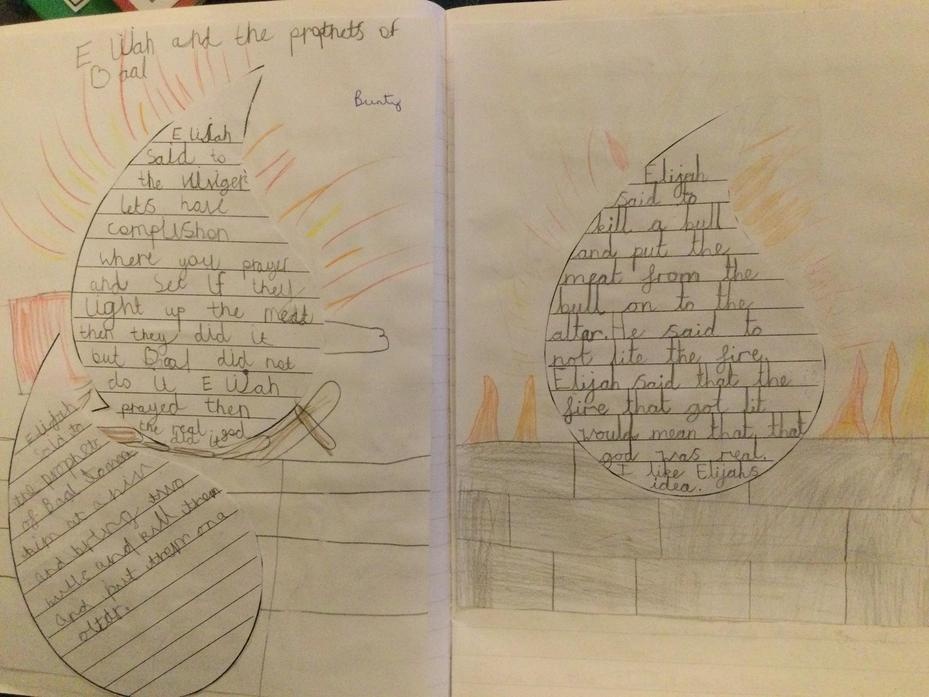 Elijah and the prophets of
Baal
Bunty
Elijah
said to
the
lets have
complishon
where you prayer
and see if they
light up the meat
then they did it
but Baal did not
do it Elijah
prayed then
the real god
did it
Elijah
said to
the prophets
of Baal
him at a
and bring two
bulls and kill them
and put them on a
altar.
Elijah
said to
kill a bull
and put the
meat from the
bull on to the
altar. He said to
not lite the fire.
Elijah said that the
fire that got lit
would mean that that
god was real.
I like Elijahs
idea.